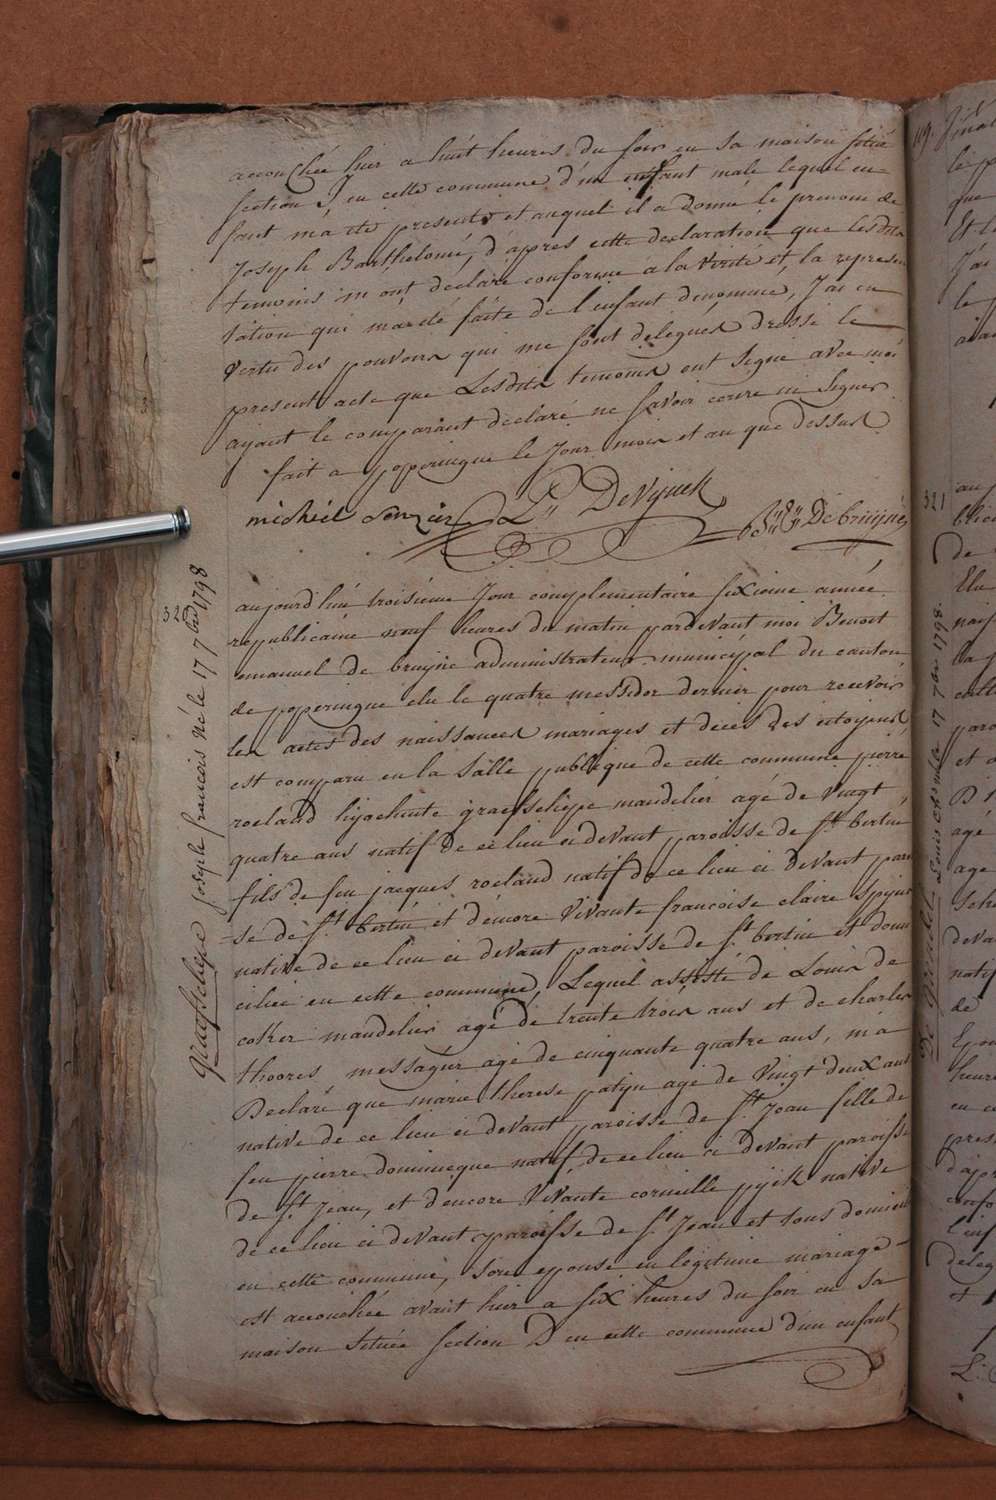 accouchée hier a huit heures du soir en sa maison située
section I en cette commune d'un enfant male lequel en=
fant m'a été presenté et auquel il a donné le prenom de
Joseph Barthelomé, d'apres cette declaration que lesdits
temoins m'ont declaré conforme a la verité et, la represen
tation qui m'a été faite de l'enfant denommé, J'ai en
vertu des pouvoirs qui me sont delegués dressé le
present acte que Lesdits temoins ont signé avec moi
ayant le comparant declaré ne savoir ecrire ni signer
fait a poperingue le Jour mois et an que dessus
michiel L: Devynck De bruijne
320
graefschepe joseph francois né le 17 7bre 1798
aujourd'hui troisieme Jour complementaire sixieme année
republicaine neuf heures du matin pardevant moi Benoit
emanuel de bruijne administrateur municipal du canton
de poperingue élu le quatre messidor dernier pour recevoir
les actes des naissances mariages et deces des citoyens
est comparu en la salle publique de cette commune pierre
roeland hijachinte graefschepe mandelier agé de vingt
quatre ans natif de ce lieu ci devant paroisse de st bertin
fils de feu jacques roeland natif de ce lieu ci devant parois
se de st bertin et d'encore vivante francoise claire
native de ce lieu ci devant paroisse de st bertin et domi
ciliée en cette commune, Lequel assisté de Louis de
coker mandelier agé de trente trois ans et de charles
thoores messager agé de cinquante quatre ans, m'a
Declaré que marie therese patijn agé de vingt deux ans
native de ce lieu ci devant paroisse de st Jean fille de
feu pierre dominique natif de ce lieu ci devant paroisse
de st Jean, et d'encore vivante corneille native
de ce lieu ci devant paroisse de st Jean et tous domicil
en cette commune, son epouse en legitime mariage
est accouchée avant hier a six heures du soir en sa
maison située section D en cette commune d'un enfant
321
Louis né le 17 7bre 1798